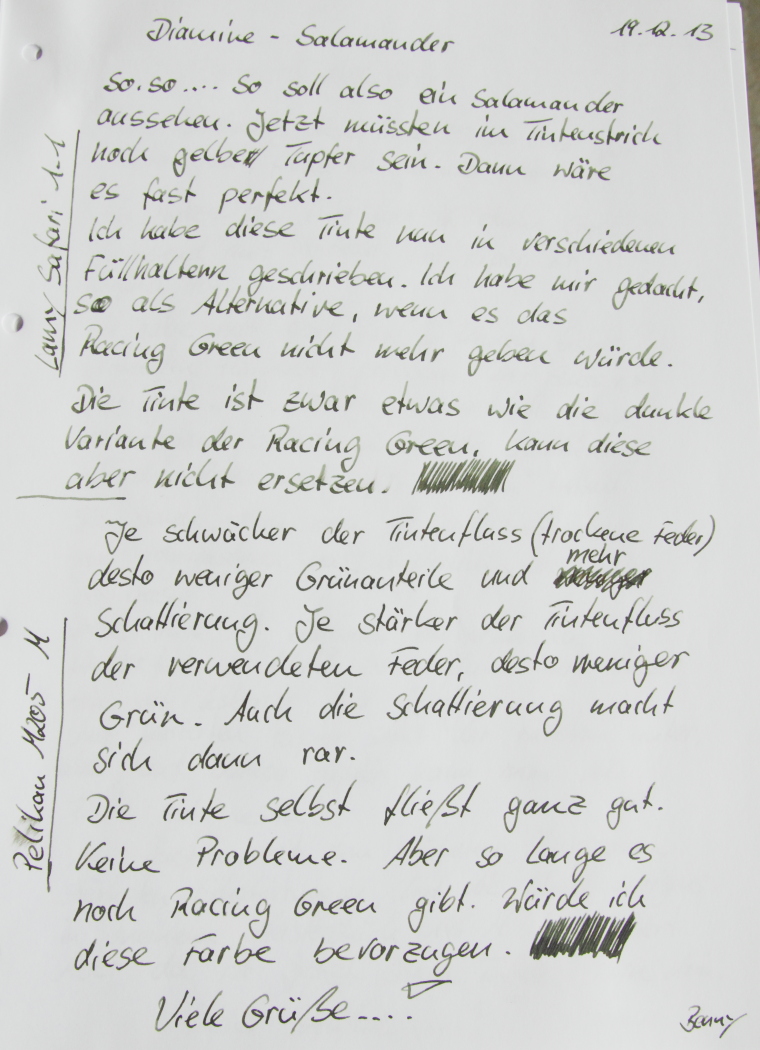 Diamine - Salamander
19.12.13
So.so.... So soll also ein Salamander
aussehen. Jetzt müssten im Tintenstrich
noch gelbe Tupfer sein. Dann wäre
es fast perfekt.
Ich habe diese Tinte nun in verschiedenen
Füllhaltern geschrieben. Ich habe mir gedacht,
so als Alternative, wenn es das
Racing Green nicht mehr geben würde.
Die Tinte ist zwar etwas wie die dunkle
Variante der Racing Green, kann diese
aber nicht ersetzen.
Lamy Safari 1.1
Je schwächer der Tintenfluss (trockene Feder)
desto weniger Grünanteile und mehr
Schattierung. Je stärker der Tintenfluss
der verwendeten Feder, desto weniger
Grün. Auch die Schattierung macht
sich dann rar.
Die Tinte selbst fließt ganz gut.
Keine Probleme. Aber so lange es
noch Racing Green gibt. Würde ich
diese Farbe bevorzugen.
Pelikan M205 M
Viele Grüße....
Benny